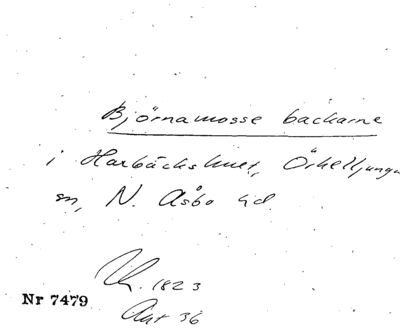 Björnamosse backarne
i Harbäckshult, Örkelljunga
sn, N. Åsbo hd
1823
Nr 7479
Akt 36